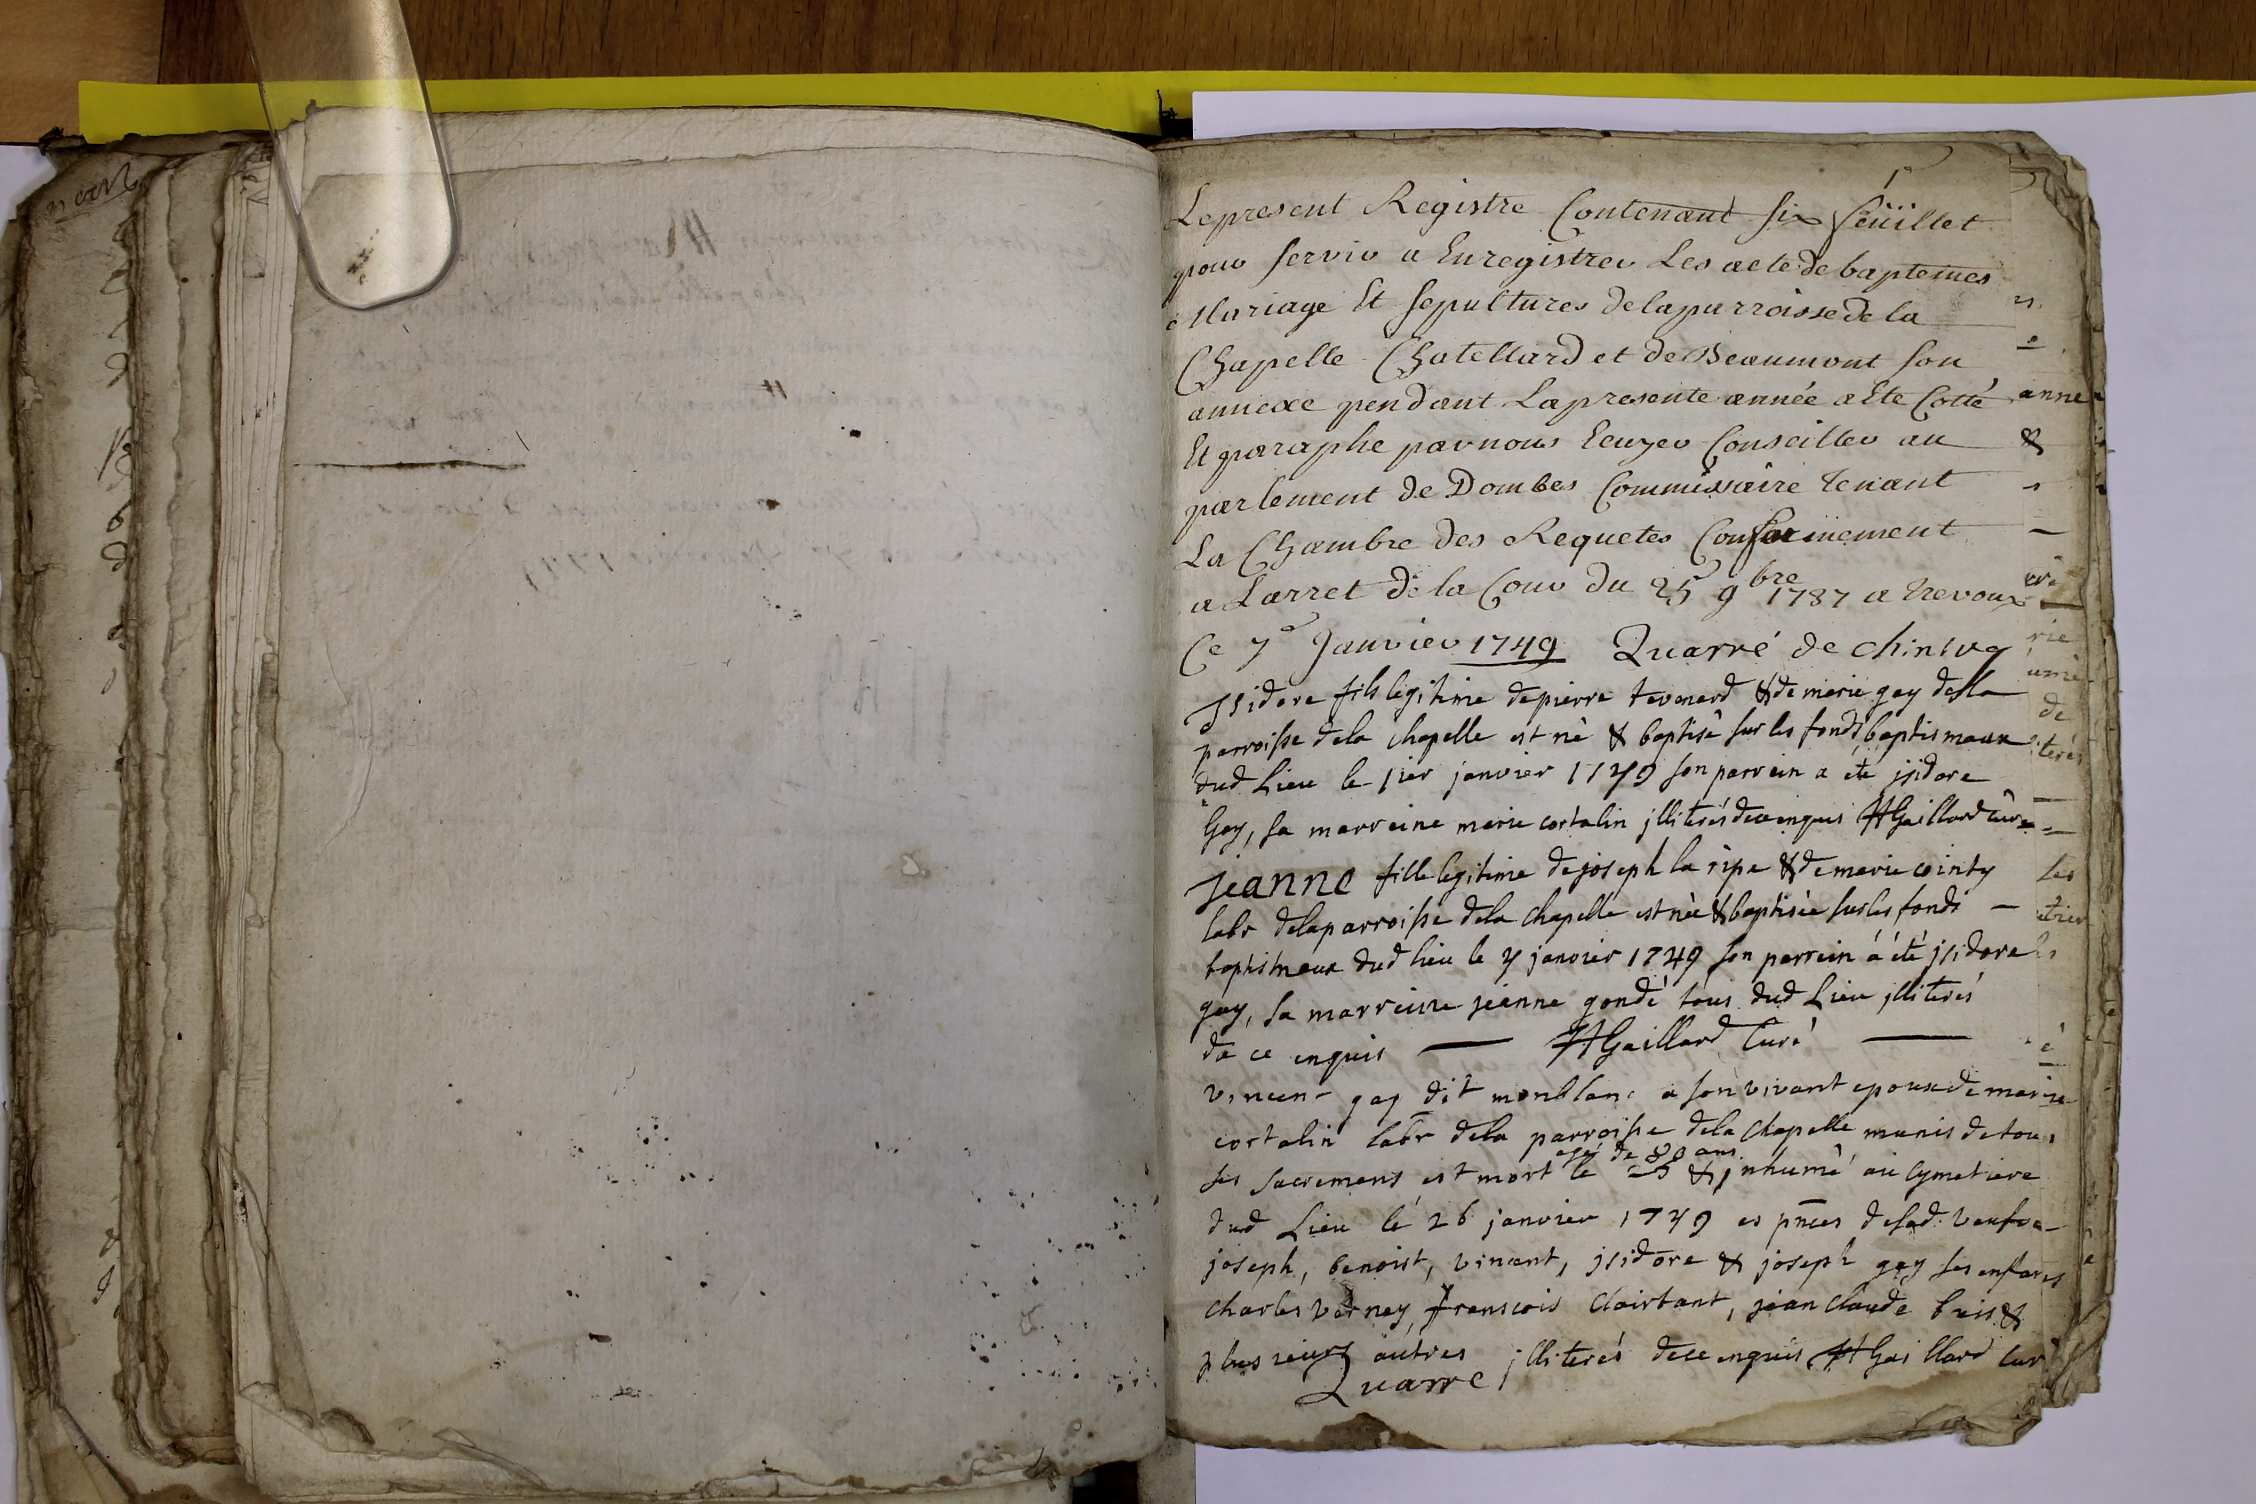 1r
Le present Registre Contenant six feüillet
pour servir a Enregistrer Les acte de baptemes
Mariage Et sepultures de la parroisse de la
Chapelle Chatellard et de Beaumont son
annexe pendant La presente année a Eté Cotté
Et paraphe par nous Ecuyer Conseiller au
parlement de Dombes Commissaire tenant
La Chambre des Requetes Conformement
a Larret de la Cour du 25 9bre 1737 a trevoux
Ce 7e Janvier 1749 Quarré de
Jsidore fils legitime de pierre & de marie gay de la
parroisse de la chapelle est né & baptisé sur les fonds baptismaux
dud Lieu le 1ier janvier 1749 son parrein a eté jsidore
Gay, sa marreine marie cortalin jlliterés de ce enquis HGaillard Curé
Jeanne fille legitime de joseph la ripe & de marie
labr de la parroisse de la chapelle est née & baptisée sur les fonds
baptismaux dud lieu le 7 janvier 1749 son parrein á été jsidore
gay, sa marreine jeanne gondé tous dud Lieu jlliterés
de ce enquis HGaillard Curé
vincent gay dit monblanc a son vivant epoux de marie
cortalin labr de la parroisse de la chapelle munis de tous
agé de 80 ans
ses sacremens est mort le 25 & jnhumé au cymetiere
dud Lieu le 26 janvier 1749 es pnces de sad. veufve
joseph, benoist, vincent, jsidore & joseph gay ses enfans
charles verney, francois clairtant, jean claude buis &
plusieurs autres jlliterés de ce enquis HGaillard Cur
Quarré